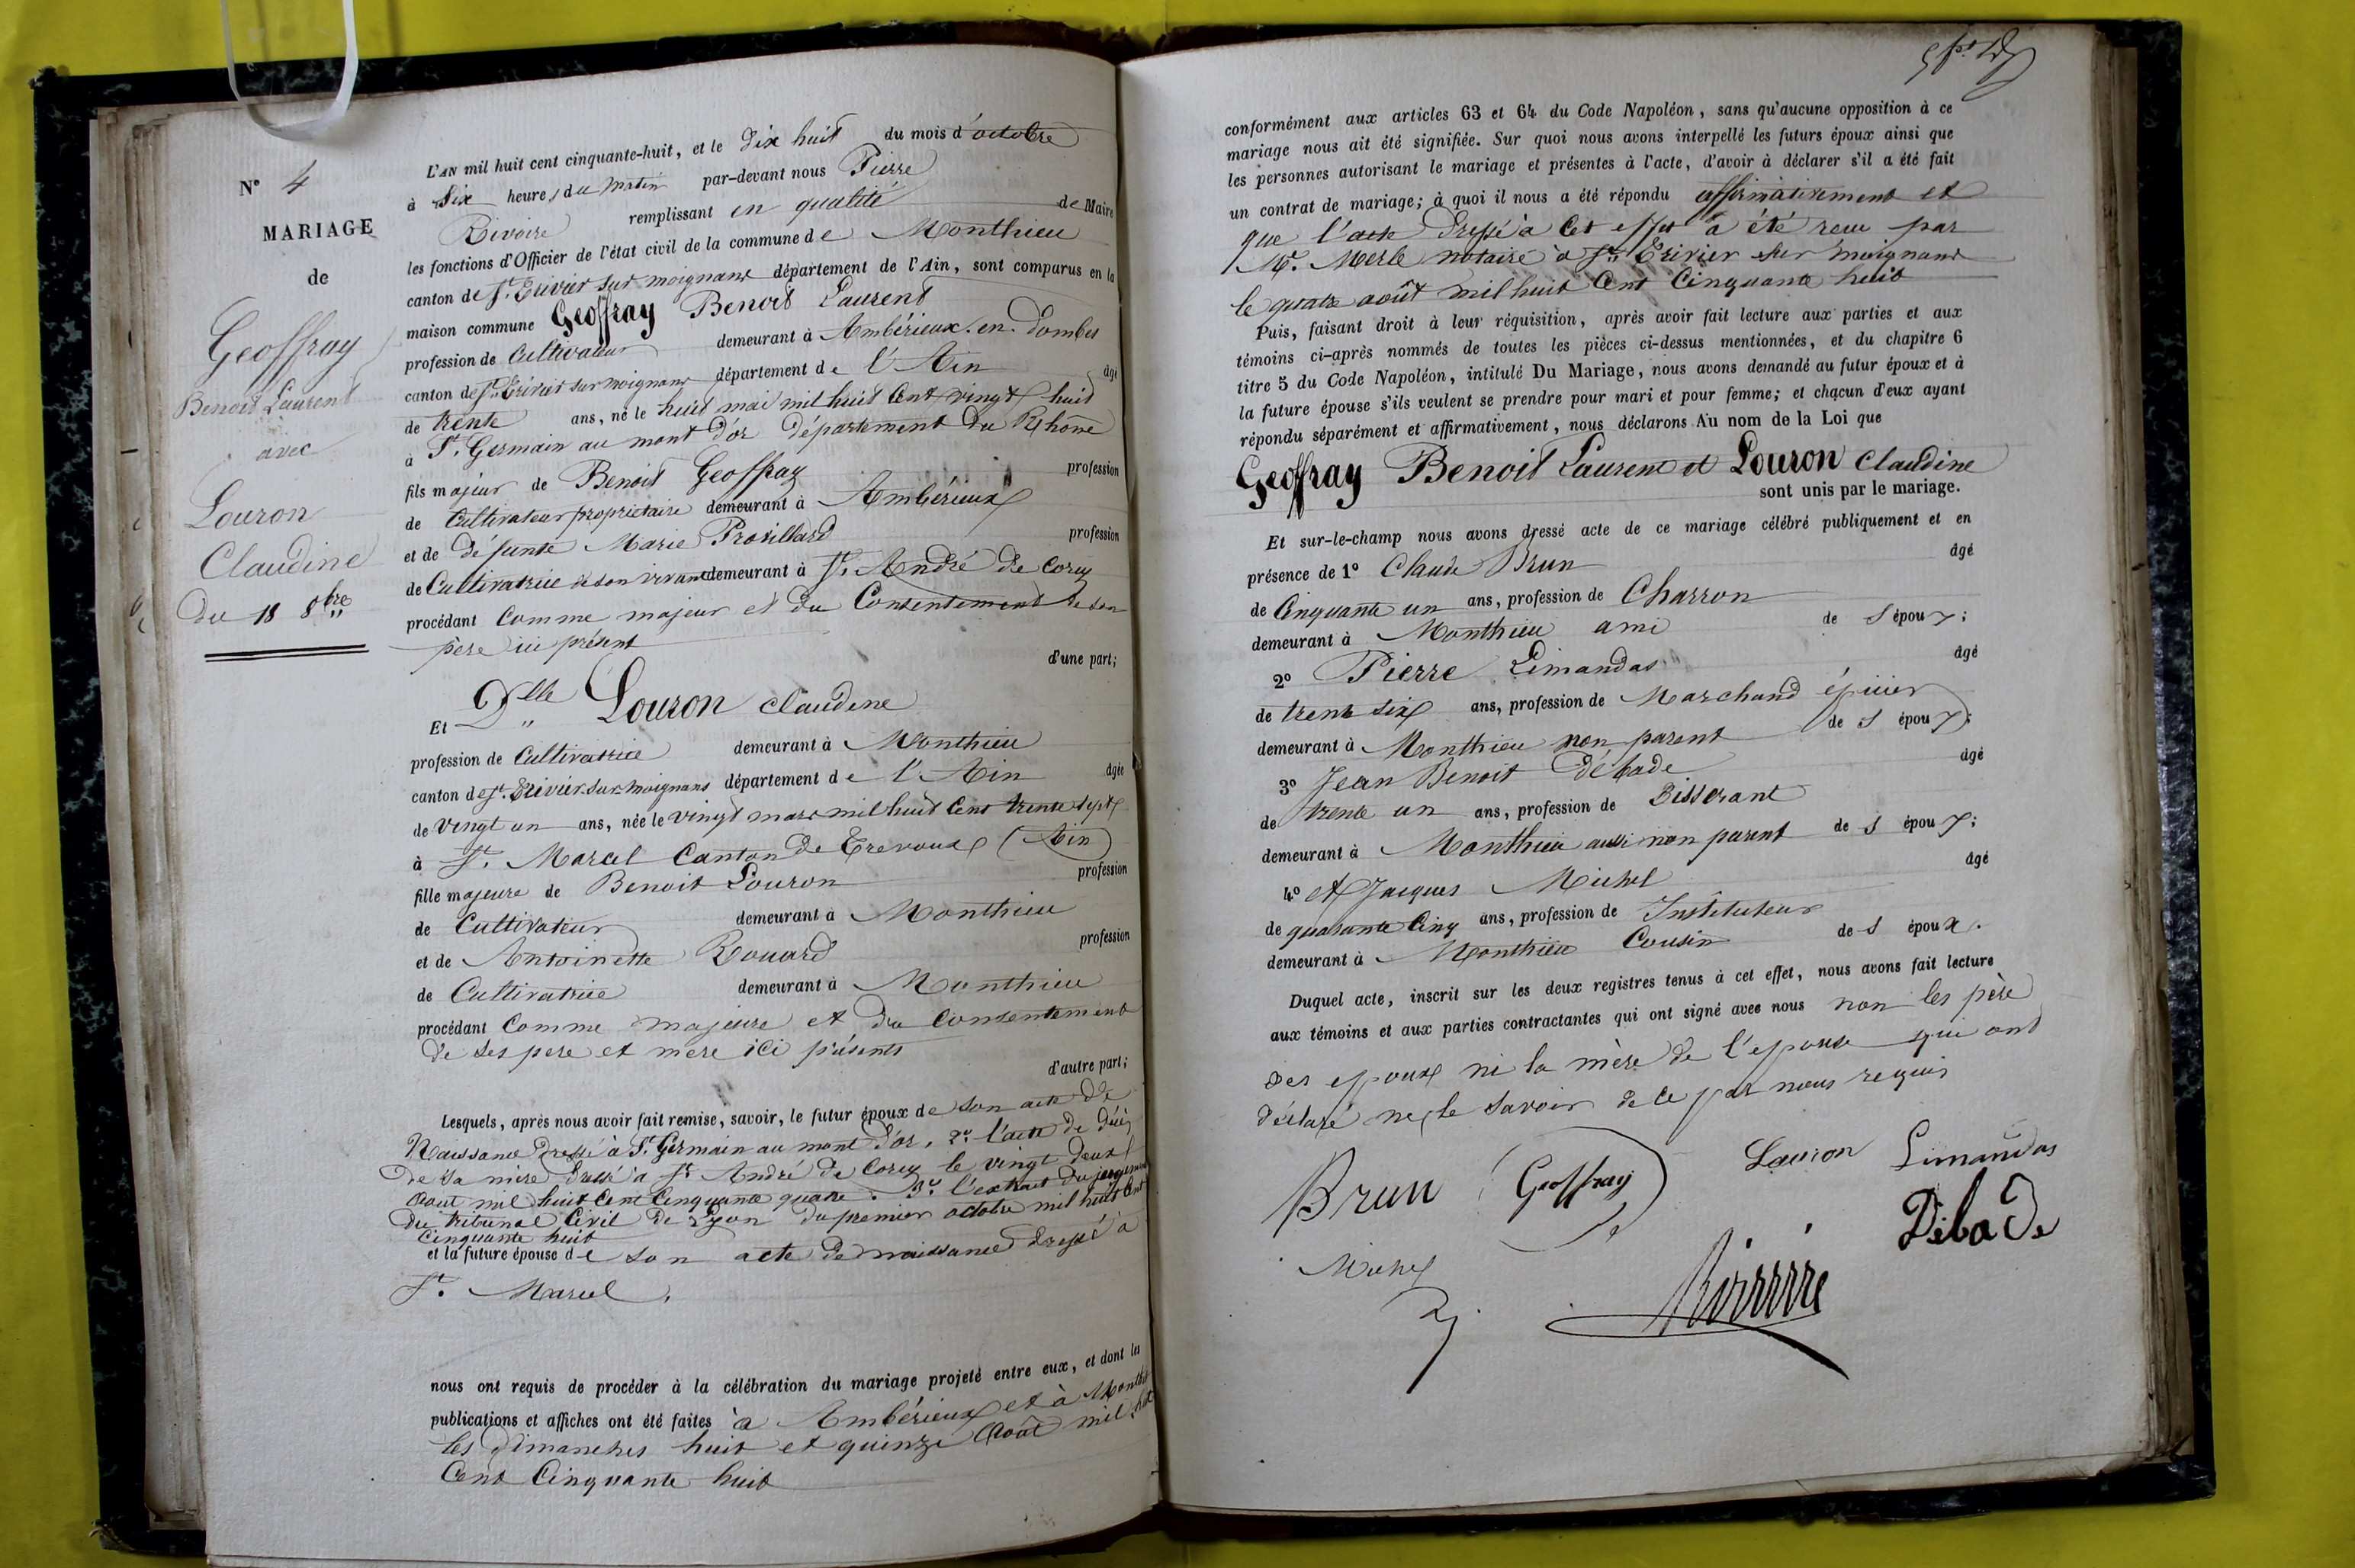 N° 4
MARIAGE
de
Geoffray
Benoit Laurent
avec
Louron
Claudine
du 18 8bre
L'AN mil huit cent cinquante-huit, et le dix huit du mois d'octobre
à Six heures du matin par-devant nous Pierre
Rivoire remplissant en qualité de Maire
les fonctions d'Officier de l'état civil de la commune de Monthieu
canton de St. Trivier sur moignans département de l'Ain, sont comparus en la
maison commune Geoffray Benoit Laurent
profession de Cultivateur demeurant à Ambérieux-en-Dombes
canton de St. Trivier sur moignans département de l'Ain âgé
de trente ans, né le huit mai mil huit Cent vingt huit
à St. Germain au mont d'or département du Rhône
fils majeur de Benoit Geoffray profession
de Cultivateur propriétaire demeurant à Ambérieux
et de défunte Marie Provillard profession
de Cultivatrice de son vivant demeurant à St. André de Corcy
procédant Comme majeur et du Consentement de son
père ici présent
d'une part;
Et Dlle Louron Claudine
profession de Cultivatrice demeurant à Monthieu
canton de St. Trivier-sur-moignans département de l'Ain âgée
de vingt un ans, née le vingt mars mil huit Cent trente sept
à St. Marcel Canton de Trevoux (Ain)
fille majeure de Benoit Louron profession
de Cultivateur demeurant à Monthieu
et de Antoinette Rouard profession
de Cultivatrice demeurant à Monthieu
procédant Comme majeure et du Consentement
de ses pere et mere ici présents
d'autre part;
Lesquels, après nous avoir fait remise, savoir, le futur époux de son acte de
Naissance dressé à St. Germain au mont d'or, 2° l'acte de décès
de sa mère dressé à St. André de Corcy le vingt deux
Aout mil huit Cent Cinquante quatre. 3° l'extrait du jugement
du tribunal Civil de Lyon du premier octobre mil huit Cent
Cinquante huit
et la future épouse de son acte de naissance dressé à
St. Marcel.
nous ont requis de procéder à la célébration du mariage projeté entre eux, et dont les
publications et affiches ont été faites à Ambérieux et à Monthieu
les Dimanches huit et quinze Août mil huit
Cent Cinquante huit
conformément aux articles 63 et 64 du Code Napoléon, sans qu'aucune opposition à ce
mariage nous ait été signifiée. Sur quoi nous avons interpellé les futurs époux ainsi que
les personnes autorisant le mariage et présentes à l'acte, d'avoir à déclarer s'il a été fait
un contrat de mariage; à quoi il nous a été répondu affirmativement et
que l'acte dressé à Cet effet a été reçu par
Me. Merle notaire à St. Trivier sur moignans
le quatre août mil huit Cent Cinquante huit
Puis, faisant droit à leur réquisition, après avoir fait lecture aux parties et aux
témoins ci-après nommés de toutes les pièces ci-dessus mentionnées, et du chapitre 6
titre 5 du Code Napoléon, intitulé Du Mariage, nous avons demandé au futur époux et à
la future épouse s'ils veulent se prendre pour mari et pour femme; et chacun d'eux ayant
répondu séparément et affirmativement, nous déclarons Au nom de la Loi que
Geoffray Benoit Laurent et Louron Claudine
sont unis par le mariage.
Et sur-le-champ nous avons dressé acte de ce mariage célébré publiquement et en
présence de 1° Claude Brun âgé
de Cinquante un ans, profession de Charron
demeurant à Monthieu ami de s époux;
2° Pierre Limandas âgé
de trente six ans, profession de Marchand épicier
demeurant à Monthieu non parent de s époux;
3° Jean Benoit Débade âgé
de trente un ans, profession de Tisserant
demeurant à Monthieu aussi non parent de s époux;
4° et Jacques Michel âgé
de quarante Cinq ans, profession de Instituteur
demeurant à Monthieu Cousin de s époux.
Duquel acte, inscrit sur les deux registres tenus à cet effet, nous avons fait lecture
aux témoins et aux parties contractantes qui ont signé avec nous non les père
des epoux ni la mère de l'epouse qui ont
déclaré ne le savoir de ce par nous requis
Brun Geoffray Louron Limandas
Débade
Michel
Rivoire